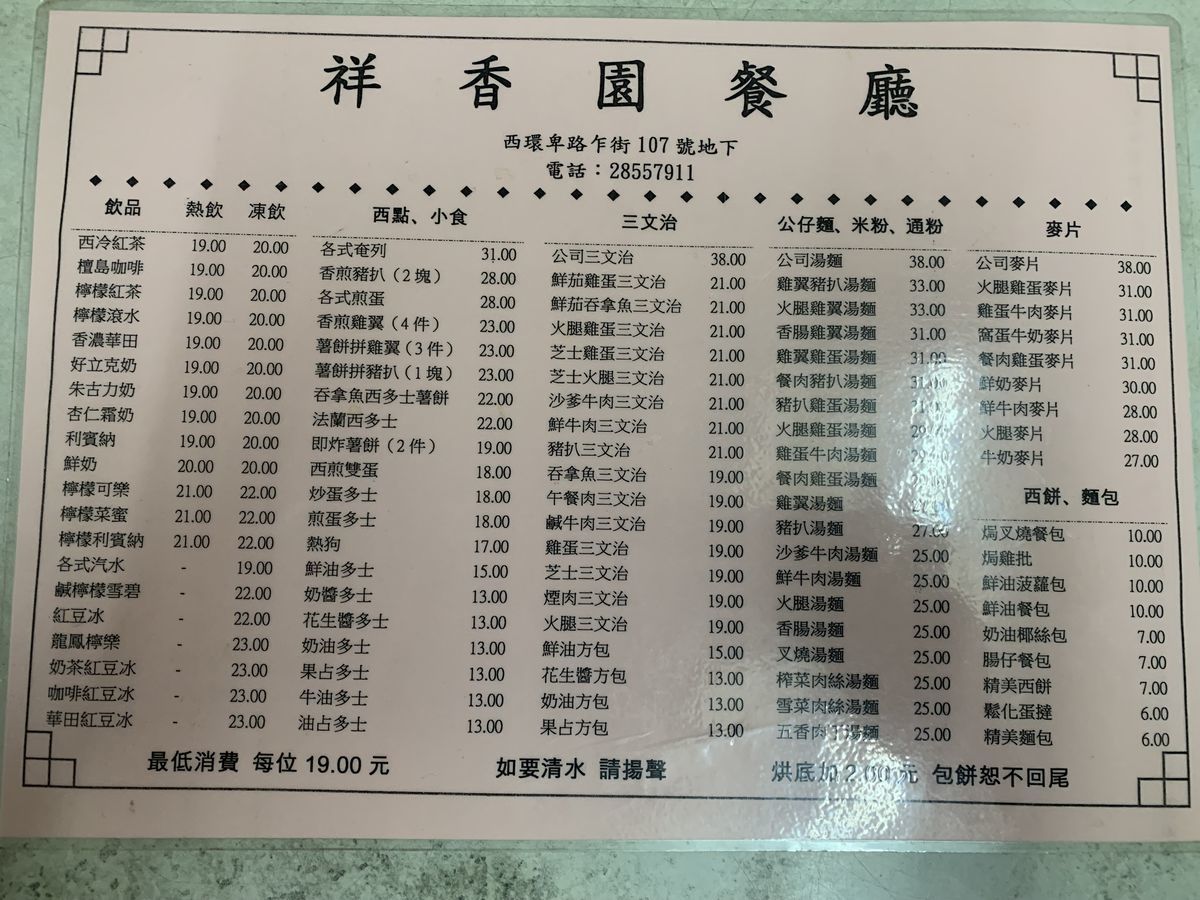 祥香園餐廳
西環卑路乍街107號地下
電話：28557911
飲品 熱飲 凍飲
西冷紅茶 19.00 20.00
檀島咖啡 19.00 20.00
檸檬紅茶 19.00 20.00
檸檬滾水 19.00 20.00
香濃華田 19.00 20.00
好立克奶 19.00 20.00
朱古力奶 19.00 20.00
杏仁霜奶 19.00 20.00
利賓納 19.00 20.00
鮮奶 20.00 20.00
檸檬可樂 21.00 22.00
檸檬菜蜜 21.00 22.00
檸檬利賓納 21.00 22.00
各式汽水 - 19.00
鹹檸檬雪碧 - 22.00
紅豆冰 - 22.00
龍鳳檸樂 - 23.00
奶茶紅豆冰 - 23.00
咖啡紅豆冰 - 23.00
華田紅豆冰 - 23.00
西點、小食
各式奄列 31.00
香煎豬扒（2塊） 28.00
各式煎蛋 28.00
香煎雞翼（4件） 23.00
薯餅拼雞翼（3件） 23.00
薯餅拼豬扒（1塊） 23.00
吞拿魚西多士薯餅 22.00
法蘭西多士 22.00
即炸薯餅（2件） 19.00
西煎雙蛋 18.00
炒蛋多士 18.00
煎蛋多士 18.00
熱狗 17.00
鮮油多士 15.00
奶醬多士 13.00
花生醬多士 13.00
奶油多士 13.00
果占多士 13.00
牛油多士 13.00
油占多士 13.00
三文治
公司三文治 38.00
鮮茄雞蛋三文治 21.00
鮮茄吞拿魚三文治 21.00
火腿雞蛋三文治 21.00
芝士雞蛋三文治 21.00
芝士火腿三文治 21.00
沙爹牛肉三文治 21.00
鮮牛肉三文治 21.00
豬扒三文治 21.00
吞拿魚三文治 19.00
午餐肉三文治 19.00
鹹牛肉三文治 19.00
雞蛋三文治 19.00
芝士三文治 19.00
煙肉三文治 19.00
火腿三文治 19.00
鮮油方包 15.00
花生醬方包 13.00
奶油方包 13.00
果占方包 13.00
公仔麵、米粉、通粉
公司湯麵 38.00
雞翼豬扒湯麵 33.00
火腿雞翼湯麵 33.00
香腸雞翼湯麵 31.00
雞翼雞蛋湯麵 31.00
餐肉豬扒湯麵
豬扒雞蛋湯麵
火腿雞蛋湯麵
雞蛋牛肉湯麵
餐肉雞蛋湯麵
雞翼湯麵
豬扒湯麵 27.00
沙爹牛肉湯麵 25.00
鮮牛肉湯麵 25.00
火腿湯麵 25.00
香腸湯麵 25.00
叉燒湯麵 25.00
榨菜肉絲湯麵 25.00
雪菜肉絲湯麵 25.00
五香肉丁湯麵 25.00
麥片
公司麥片 38.00
火腿雞蛋麥片 31.00
雞蛋牛肉麥片 31.00
窩蛋牛奶麥片 31.00
餐肉雞蛋麥片 31.00
鮮奶麥片 30.00
鮮牛肉麥片 28.00
火腿麥片 28.00
牛奶麥片 27.00
西餅、麵包
焗叉燒餐包 10.00
焗雞批 10.00
鮮油菠蘿包 10.00
鮮油餐包 10.00
奶油椰絲包 7.00
腸仔餐包 7.00
精美西餅 7.00
鬆化蛋撻 6.00
精美麵包 6.00
最低消費 每位19.00元 如要清水 請揚聲 烘底加2.00元 包餅恕不回尾